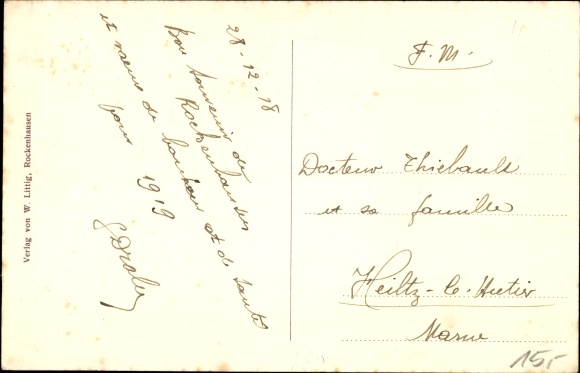 28-12-18
Bon souvenir de
Rockenhausen
et vœux de bonheur et de santé
pour 1919
F. M.
Docteur Thiébault
et sa famille
Heiltz-le-Hutier
Marne
15,-
Verlag von W. Littig, Rockenhausen